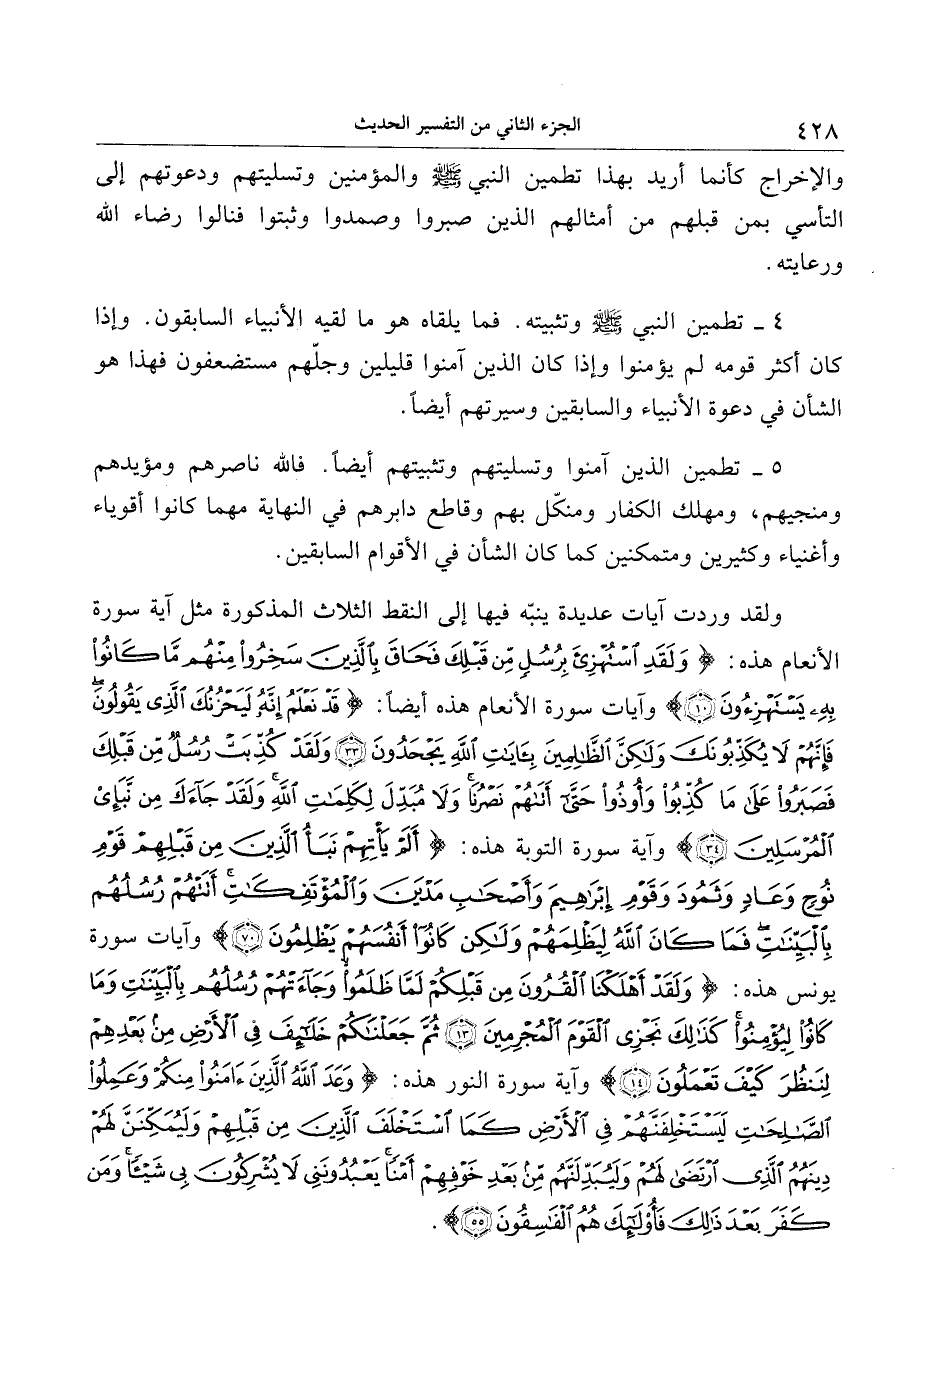 ٤٢٨ الجزء الثاني من التفسير الحديث
والإخراج كأنما أريد بهذا تطمين النبي ﷺ والمؤمنين وتسليتهم ودعوتهم إلى
التأسي بمن قبلهم من أمثالهم الذين صبروا وصمدوا وثبتوا فنالوا رضاء الله
ورعايته .
٤ ـ تطمين النبي ﷺ وتثبيته. فما يلقاه هو ما لقيه الأنبياء السابقون. وإذا
كان أكثر قومه لم يؤمنوا وإذا كان الذين آمنوا قليلين وجلّهم مستضعفون فهذا هو
الشأن في دعوة الأنبياء والسابقين وسيرتهم أيضاً.
٥ ـ تطمين الذين آمنوا وتسليتهم وتثبيتهم أيضاً. فالله ناصرهم ومؤيدهم
ومنجيهم، ومهلك الكفار ومنكّل بهم وقاطع دابرهم في النهاية مهما كانوا أقوياء
وأغنياء وكثيرين ومتمكنين كما كان الشأن في الأقوام السابقين.
ولقد وردت آيات عديدة ينبّه فيها إلى النقط الثلاث المذكورة مثل آية سورة
الأنعام هذه: ﴿ وَلَقَدِ ٱسْتُهْزِئَ بِرُسُلٍ مِّن قَبْلِكَ فَحَاقَ بِٱلَّذِينَ سَخِرُوا۟ مِنْهُم مَّا كَانُوا۟
بِهِۦ يَسْتَهْزِءُونَ ١٠﴾ وآيات سورة الأنعام هذه أيضاً: ﴿ قَدْ نَعْلَمُ إِنَّهُۥ لَيَحْزُنُكَ ٱلَّذِى يَقُولُونَۖ
فَإِنَّهُمْ لَا يُكَذِّبُونَكَ وَلَٰكِنَّ ٱلظَّٰلِمِينَ بِـَٔايَٰتِ ٱللَّهِ يَجْحَدُونَ ٣٣ وَلَقَدْ كُذِّبَتْ رُسُلٌ مِّن قَبْلِكَ
فَصَبَرُوا۟ عَلَىٰ مَا كُذِّبُوا۟ وَأُوذُوا۟ حَتَّىٰٓ أَتَىٰهُمْ نَصْرُنَاۚ وَلَا مُبَدِّلَ لِكَلِمَٰتِ ٱللَّهِۚ وَلَقَدْ جَآءَكَ مِن نَّبَإِى۟
ٱلْمُرْسَلِينَ ٣٤﴾ وآية سورة التوبة هذه: ﴿ أَلَمْ يَأْتِهِمْ نَبَأُ ٱلَّذِينَ مِن قَبْلِهِمْ قَوْمِ
نُوحٍ وَعَادٍ وَثَمُودَ وَقَوْمِ إِبْرَٰهِيمَ وَأَصْحَٰبِ مَدْيَنَ وَٱلْمُؤْتَفِكَٰتِۚ أَتَتْهُمْ رُسُلُهُم
بِٱلْبَيِّنَٰتِۖ فَمَا كَانَ ٱللَّهُ لِيَظْلِمَهُمْ وَلَٰكِن كَانُوٓا۟ أَنفُسَهُمْ يَظْلِمُونَ ٧٠﴾ وآيات سورة
يونس هذه: ﴿ وَلَقَدْ أَهْلَكْنَا ٱلْقُرُونَ مِن قَبْلِكُمْ لَمَّا ظَلَمُوا۟ وَجَآءَتْهُمْ رُسُلُهُم بِٱلْبَيِّنَٰتِ وَمَا
كَانُوا۟ لِيُؤْمِنُوا۟ۚ كَذَٰلِكَ نَجْزِى ٱلْقَوْمَ ٱلْمُجْرِمِينَ ١٣ ثُمَّ جَعَلْنَٰكُمْ خَلَٰٓئِفَ فِى ٱلْأَرْضِ مِنۢ بَعْدِهِمْ
لِنَنظُرَ كَيْفَ تَعْمَلُونَ ١٤﴾ وآية سورة النور هذه: ﴿ وَعَدَ ٱللَّهُ ٱلَّذِينَ ءَامَنُوا۟ مِنكُمْ وَعَمِلُوا۟
ٱلصَّٰلِحَٰتِ لَيَسْتَخْلِفَنَّهُمْ فِى ٱلْأَرْضِ كَمَا ٱسْتَخْلَفَ ٱلَّذِينَ مِن قَبْلِهِمْ وَلَيُمَكِّنَنَّ لَهُمْ
دِينَهُمُ ٱلَّذِى ٱرْتَضَىٰ لَهُمْ وَلَيُبَدِّلَنَّهُم مِّنۢ بَعْدِ خَوْفِهِمْ أَمْنًاۚ يَعْبُدُونَنِى لَا يُشْرِكُونَ بِى شَيْـًٔاۚ وَمَن
كَفَرَ بَعْدَ ذَٰلِكَ فَأُو۟لَٰٓئِكَ هُمُ ٱلْفَٰسِقُونَ ٥٥﴾ .